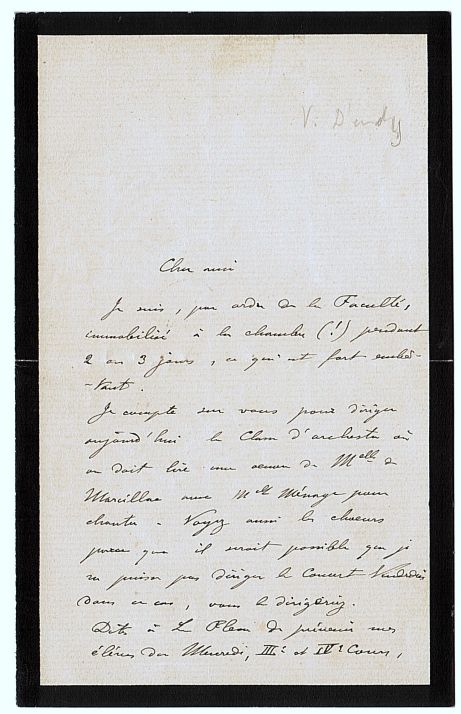 V. D'Indy
Cher ami
Je suis, par ordre de la Faculté,
immobilisé à la chambre (!) pendant
2 ou 3 jours, ce qui est fort embê-
-tant.
Je compte sur vous pour diriger
aujourd'hui la Classe d'orchestre où
on doit lire une œuvre de Melle de
Marcillac avec Melle Ménage pour
chanter - Voyez aussi les chœurs
parce que il serait possible que je
ne puisse pas diriger le Concert Vendredi
dans ce cas, vous le dirigeriez.
Dites à Le Flem de prévenir mes
élèves du Mercredi, IIIe et IVe Cours,